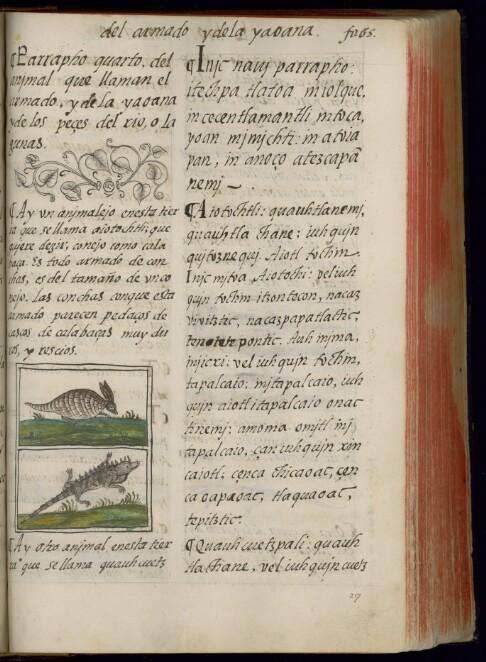 del armado y dela yaoana. fo65.
¶Parrapho quarto, del
animal que llaman el
armado, y dela yaoana
y de los peces del rio, o la
gunas.
¶Ay vn animalejo enesta tier
ra que se llama aiotochtli; que
quiere dezir, conejo como cala
baça. Es todo armado de con
chas, es del tamaño de vn co
nejo. las conchas conque esta
armado parecen pedaços de
cascos de calabaças muy du
ros, y rescios.
¶Ay otro animal enesta tier
ra que se llama quauhcuetz
¶Injc nauj parrapho:
itechpa tlatoa in iolque,
in cecentlamantli intoca,
yoan mjmjchti: in atoia
pan, in anoço atezcapā
nemj —
¶Aiotochtli: quauhtlanemj,
quauhtla chane: iuhqujn
qujtoznequj. Aiotl tochtli.
Injc mitoa Aiotochi: vel iuh
qujn tochin itzontecon, nacaz
vivitztic, nacazpapatlactic,
tenpontic. Auh inima,
injicxi: vel iuhqujn tochin,
tapalcaio: in itapalcaio, iuh
qujn aiotli itapalcaio onac
tinemj: amoma omjtl inj
tapalcaio, çan iuhqujn xin
caiotl; cenca chicaoac, çen
ca oapaoac, tlaquaoac,
tepitztic.
¶Quauhcuetzpali: quauh
tla chane, vel iuhqujn cuetz
27